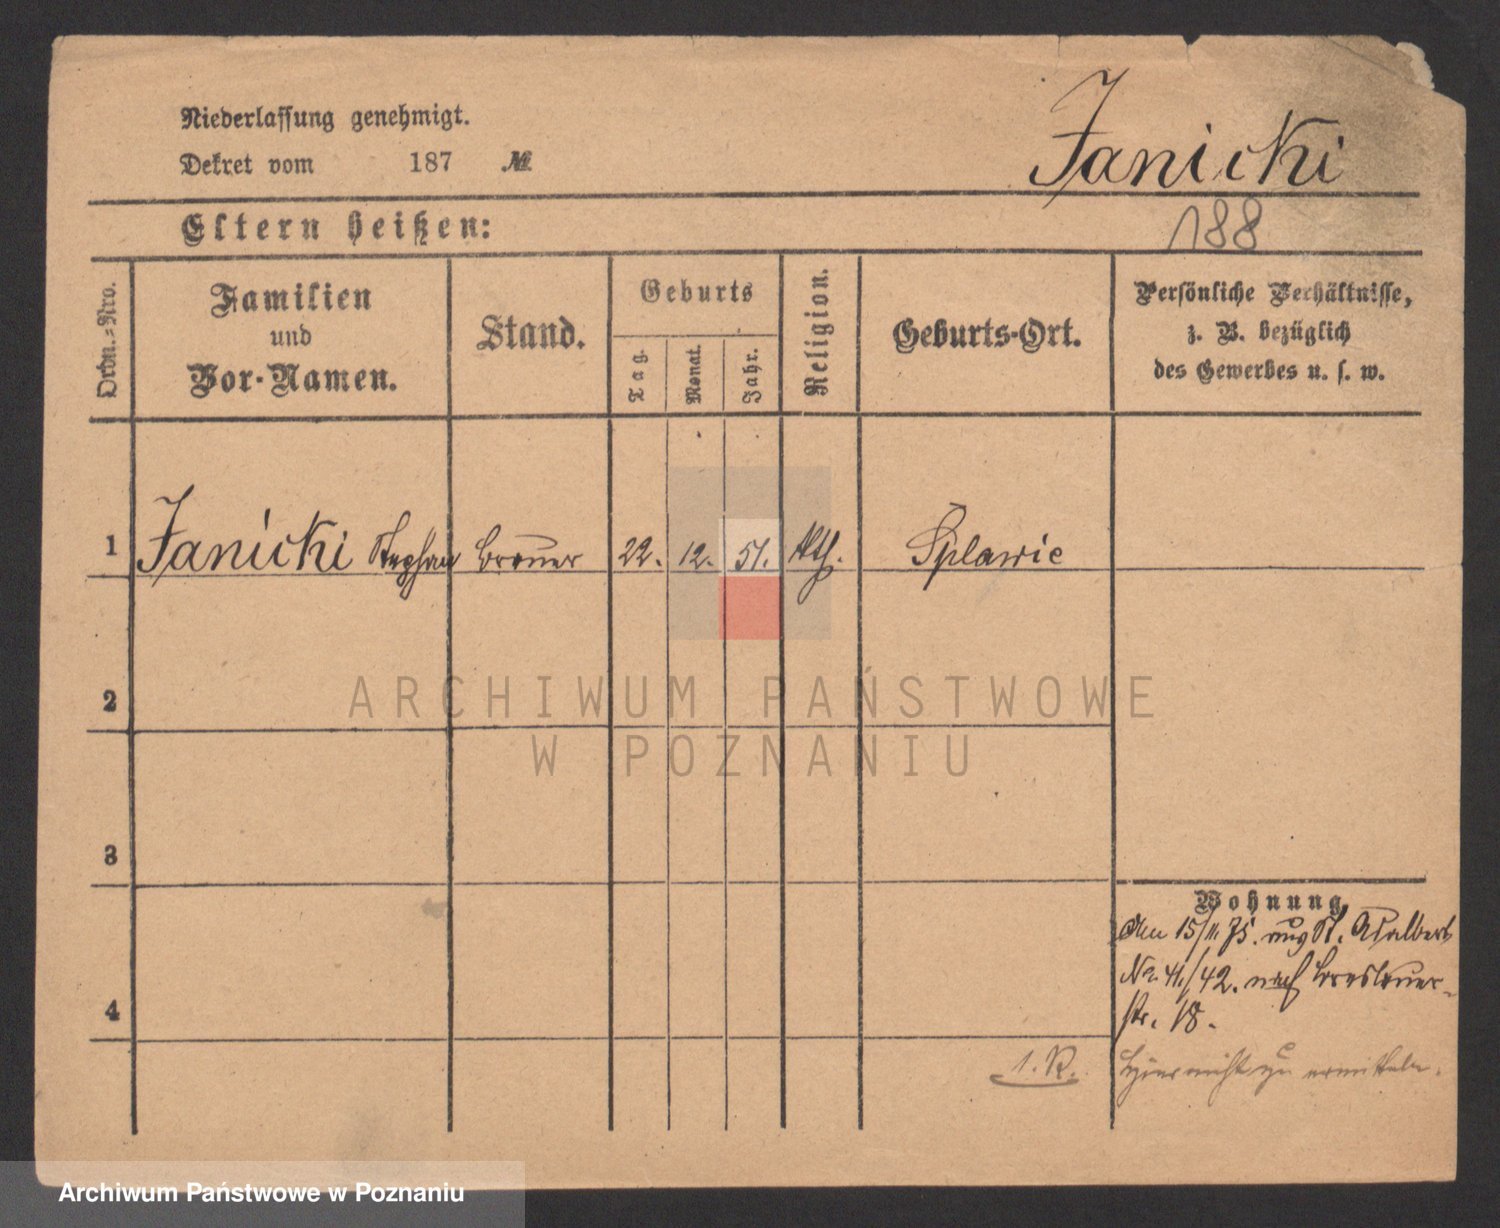 Niederlassung genehmigt.
Dekret vom 187 №
Janicki
Eltern heißen:
188
Ordn.=Nro.
Familien
und
Vor-Namen.
Stand.
Geburts
Tag.
Monat.
Jahr.
Religion.
Geburts-Ort.
Persönliche Verhältnisse,
z. B. bezüglich
des Gewerbes u. s. w.
1 Janicki Stephan Brauer 22. 12. 51. kth. Splawie
2
3
4
Wohnung
Den 15/11 75. aus St. Adalbert
No. 41/42. nach Breslauer-
str. 18.
Hier nicht zu ermitteln.
1. R.
ARCHIWUM PAŃSTWOWE
W POZNANIU
Archiwum Państwowe w Poznaniu